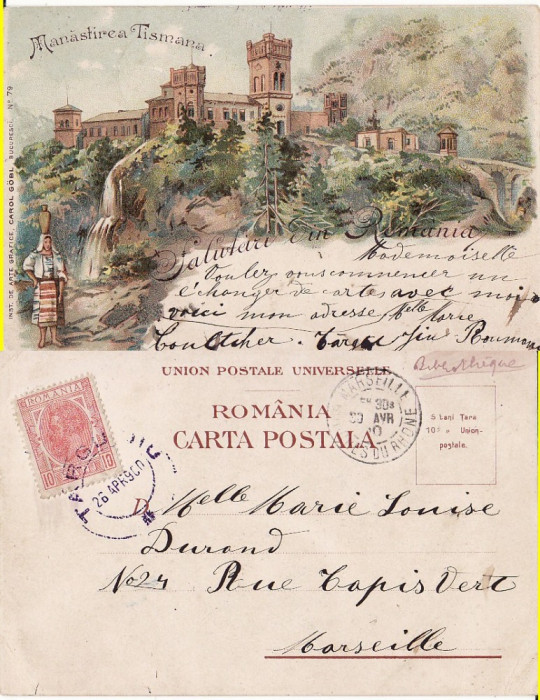 Manăstirea Tismana.
INST. DE ARTE GRAFICE, CAROL GÖBL, BUCURESCI. No 79
Salutări din România
Mademoiselle
Voulez vous commencer un
échanger de cartes avec moi
voici mon adresse Melle Marie
Târgu Jiu Roumanie
UNION POSTALE UNIVERSELLE
ROMÂNIA
CARTA POSTALA
ROMANIA
10 10
26 APR 900
MARSEILLE
30 AVR
BES DU RHONE
5 bani Țara
10 " Union-
postale.
D. Melle Marie Louise
Durand
No 24 Rue Tapis Vert
Marseille